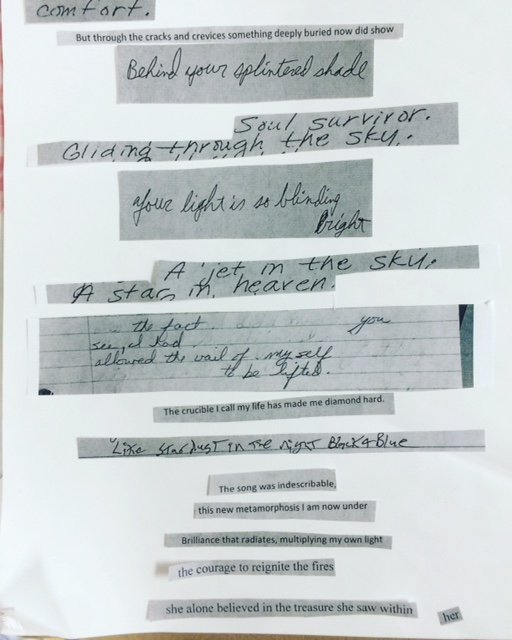 comfort.
But through the cracks and crevices something deeply buried now did show
Behind your splintered shade
Soul survivor.
Gliding through the sky.
Your light is so blinding
bright
A jet in the sky.
A star in heaven.
the fact you
see, I had
allowed the vail of myself
to be lifted.
The crucible I call my life has made me diamond hard.
Like stardust in the night Black & Blue
The song was indescribable,
this new metamorphosis I am now under
Brilliance that radiates, multiplying my own light
the courage to reignite the fires
she alone believed in the treasure she saw within her